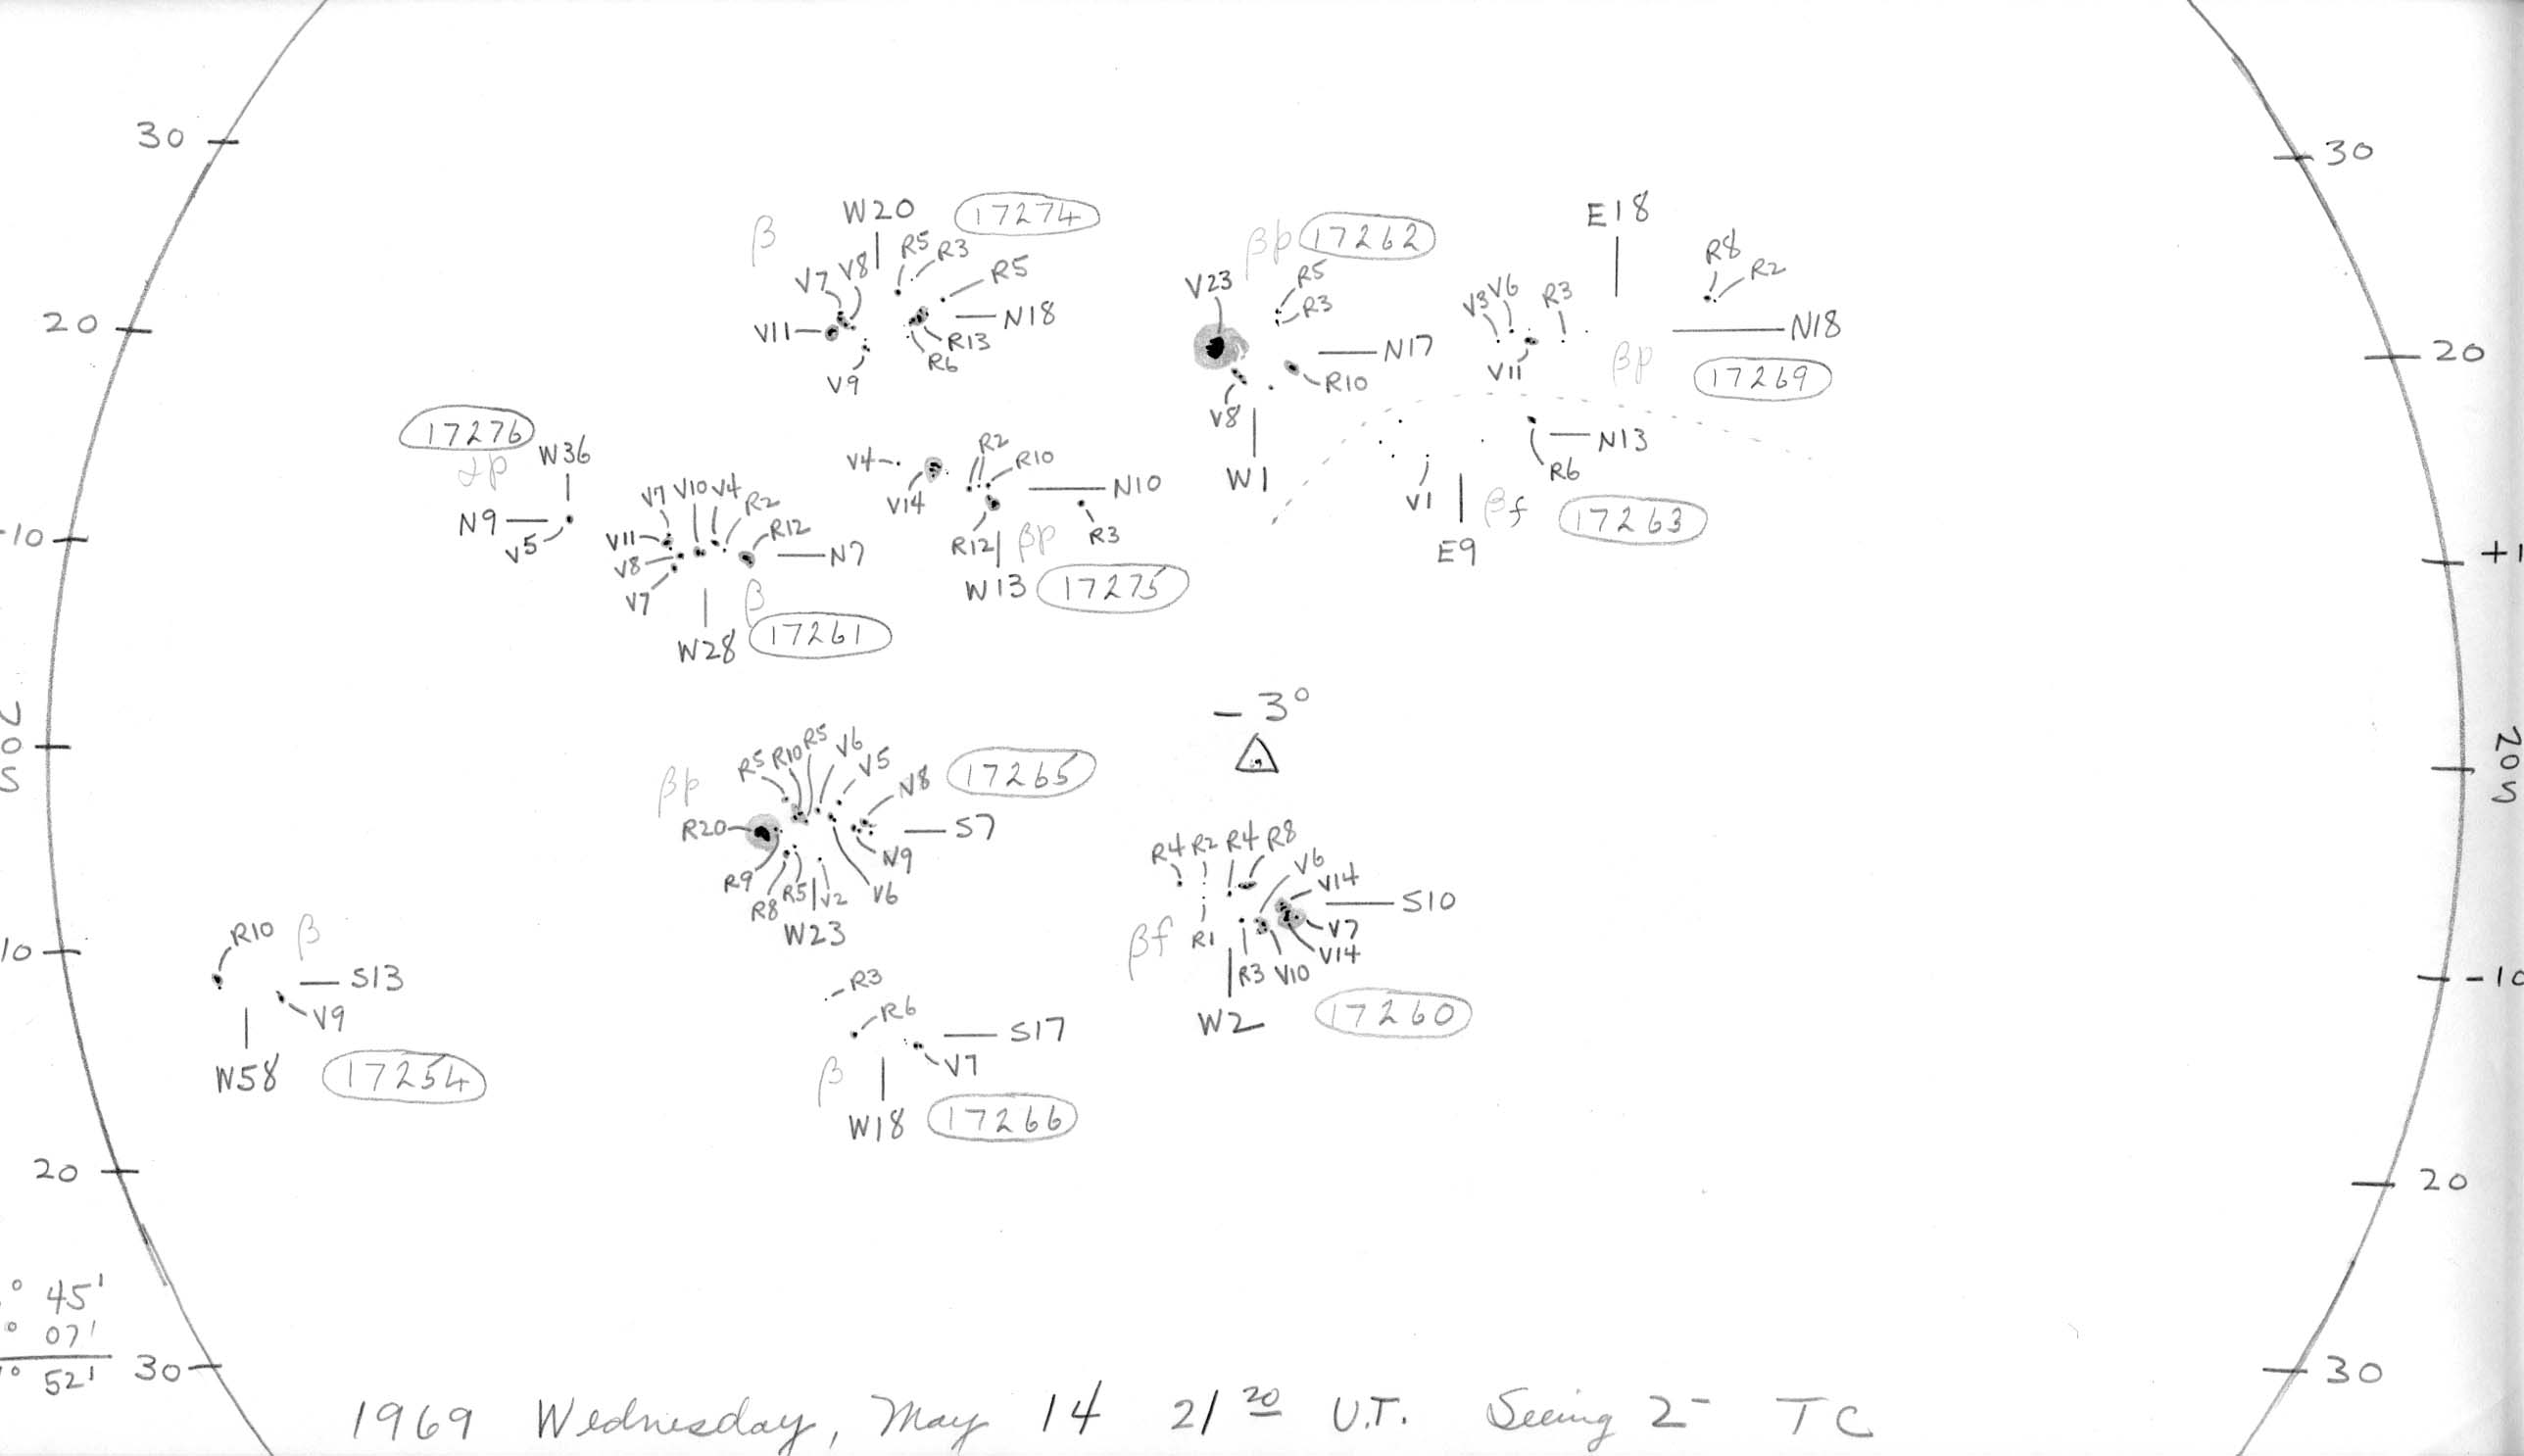 30
30
β
W20
17274
V7
V8
R5
R3
R5
V11
N18
R13
R6
V9
βp
17262
V23
R5
R3
N17
R10
V8
W1
E18
R8
R2
V3
V6
R3
N18
V11
βp
17269
20
20
17276
αp
W36
N9
V5
V7
V10
V4
R2
V11
R12
V8
N7
V7
β
W28
17261
V4
R2
R10
V14
N10
R12
βp
R3
W13
17275
N13
R6
V1
βf
17263
E9
10
+1
- 3°
0
S
20
S
βp
R5
R10
R5
V6
V5
V8
17265
R20
S7
R9
V9
R8
R5
V2
V6
W23
R4
R2
R4
R8
V6
V14
S10
βf
R1
V7
V14
R3
V10
W2
17260
R10
β
S13
V9
W58
17254
10
-10
R3
R6
S17
V7
β
W18
17266
20
20
° 45'
° 07'
° 52'
30
30
1969 Wednesday, May 14 21 20 U.T. Seeing 2- TC